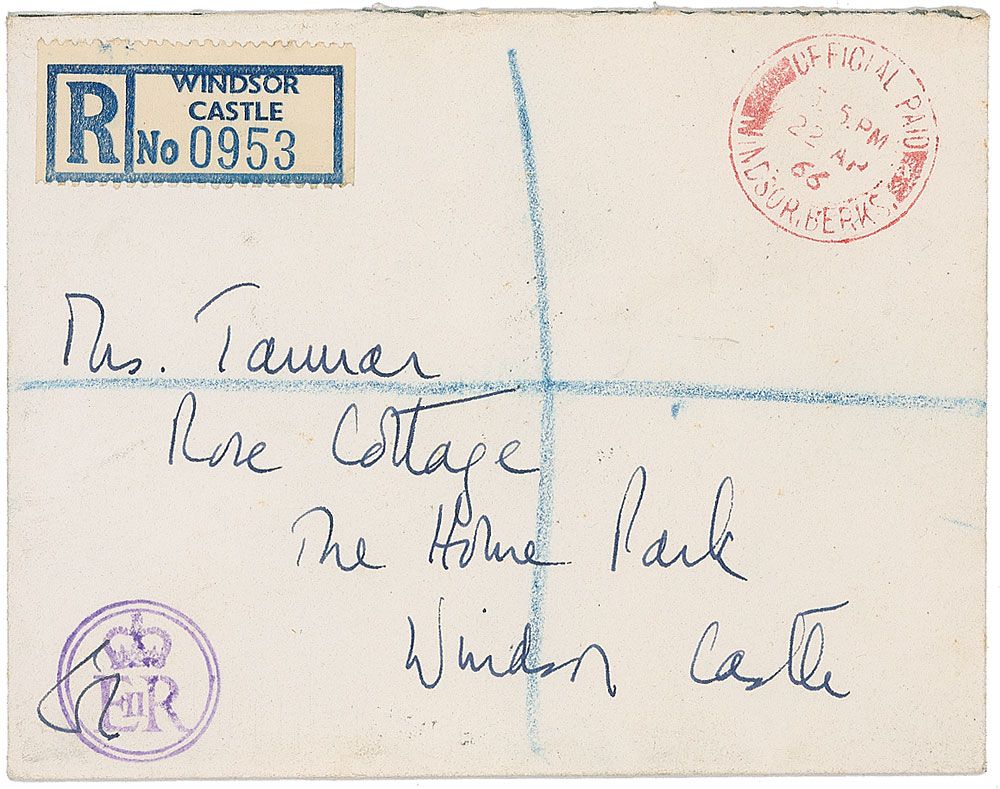 R
WINDSOR
CASTLE
No 0953
OFFICIAL PAID
5.PM
22 AP
66
WINDSOR, BERKS.
Mrs. Tannar
Rose Cottage
The Home Park
Windsor Castle
EIIR